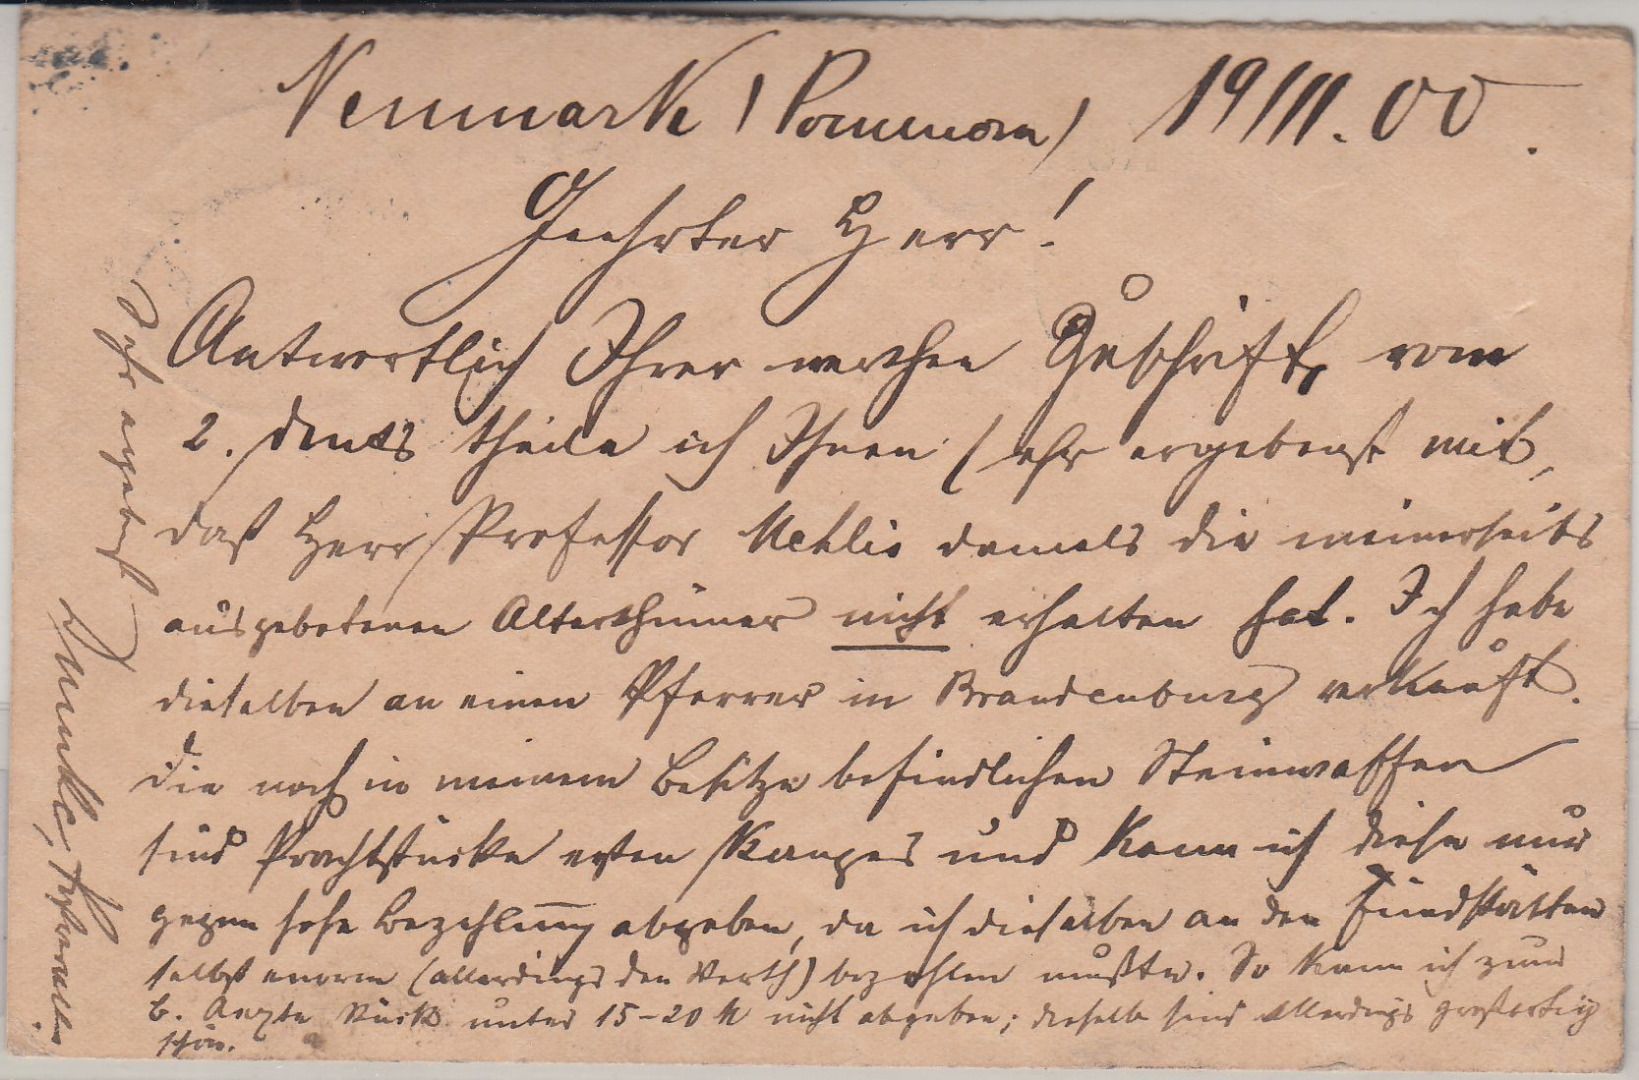 Neumark (Pommern) 19/11.00.
Geehrter Herr!
Antwortlich Ihrer werthen Zuschrift vom
2. theile ich Ihnen sehr ergebenst mit,
daß Herr Professor Mehlis damals die meinerseits
ausgebotenen Alterthümer nicht erhalten hat. Ich habe
dieselben an einen Pfarrer in Brandenburg verkauft.
Die noch in meinem Besitze befindlichen Steinwaffen
sind Prachtstücke ersten Ranges und kann ich diese nur
gegen hohe Bezahlung abgeben, da ich dieselben an den Fundstätten
selbst enorm (allerdings den Werth) bezahlen mußte. So kann ich zum
B. Aexte Stück unter 15-20 M nicht abgeben; dieselben sind allerdings großartig
schön.
Sehr ergebenst